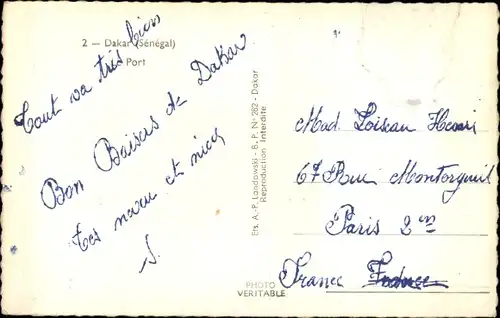 2 — Dakar (Sénégal)
Port
Tout va très bien
Bon Baisers de Dakar
tes neveu et nièce
J.
Ets. A.-P. Landowski - B. P. N° 262 - Dakar
Reproduction Interdite
PHOTO
VERITABLE
Mad. Loiseau Henri
67 Rue Montorgueil
Paris 2em
France